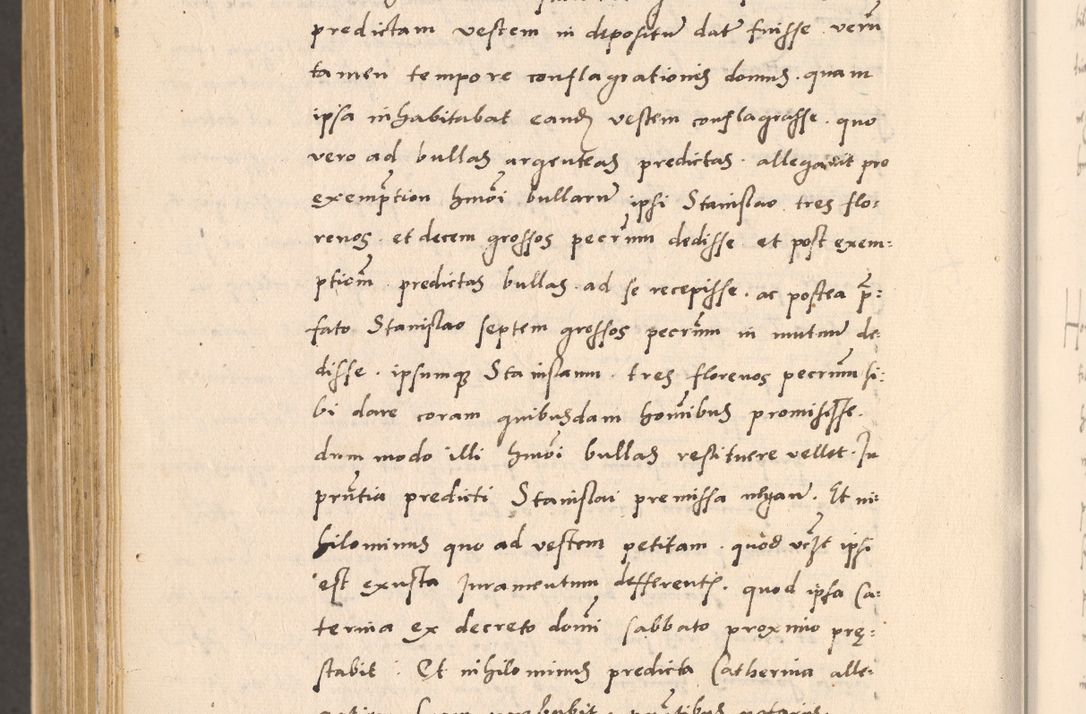 predictam vestem in depositu dat fuisse veru
tamen tempore conflagrationis domus . quam
ipsa inhabitabat eand vestem conflagrasse . quo
vero ad bullas argenteas predictas . allegavit pro
exemption hmoi bullaru ipsi Stanislao tres flo:
renos . et decem grossos pecrum dedisse et post exem:
ptiom . predictas bullas . ad se recepisse . ac postea p:
fato Stanislao septem grossos pecrum in mutuu de:
disse . ipsumq Stanislaum . tres florenos pecrum si:
bi dare coram quibusdam homibus promisisse .
dum modo illi hmoi bullas restituere vellet . In
prntia predicti Stanislai premissa negan . Et ni:
hilominus quo ad vestem petitam . quod ipsi
est exusta Iuramentum defferentis . quod ipsa Ca:
terina ex decreto domi sabbato proximo prę:
stabit . Et nihilominus predicta Catherina alle: